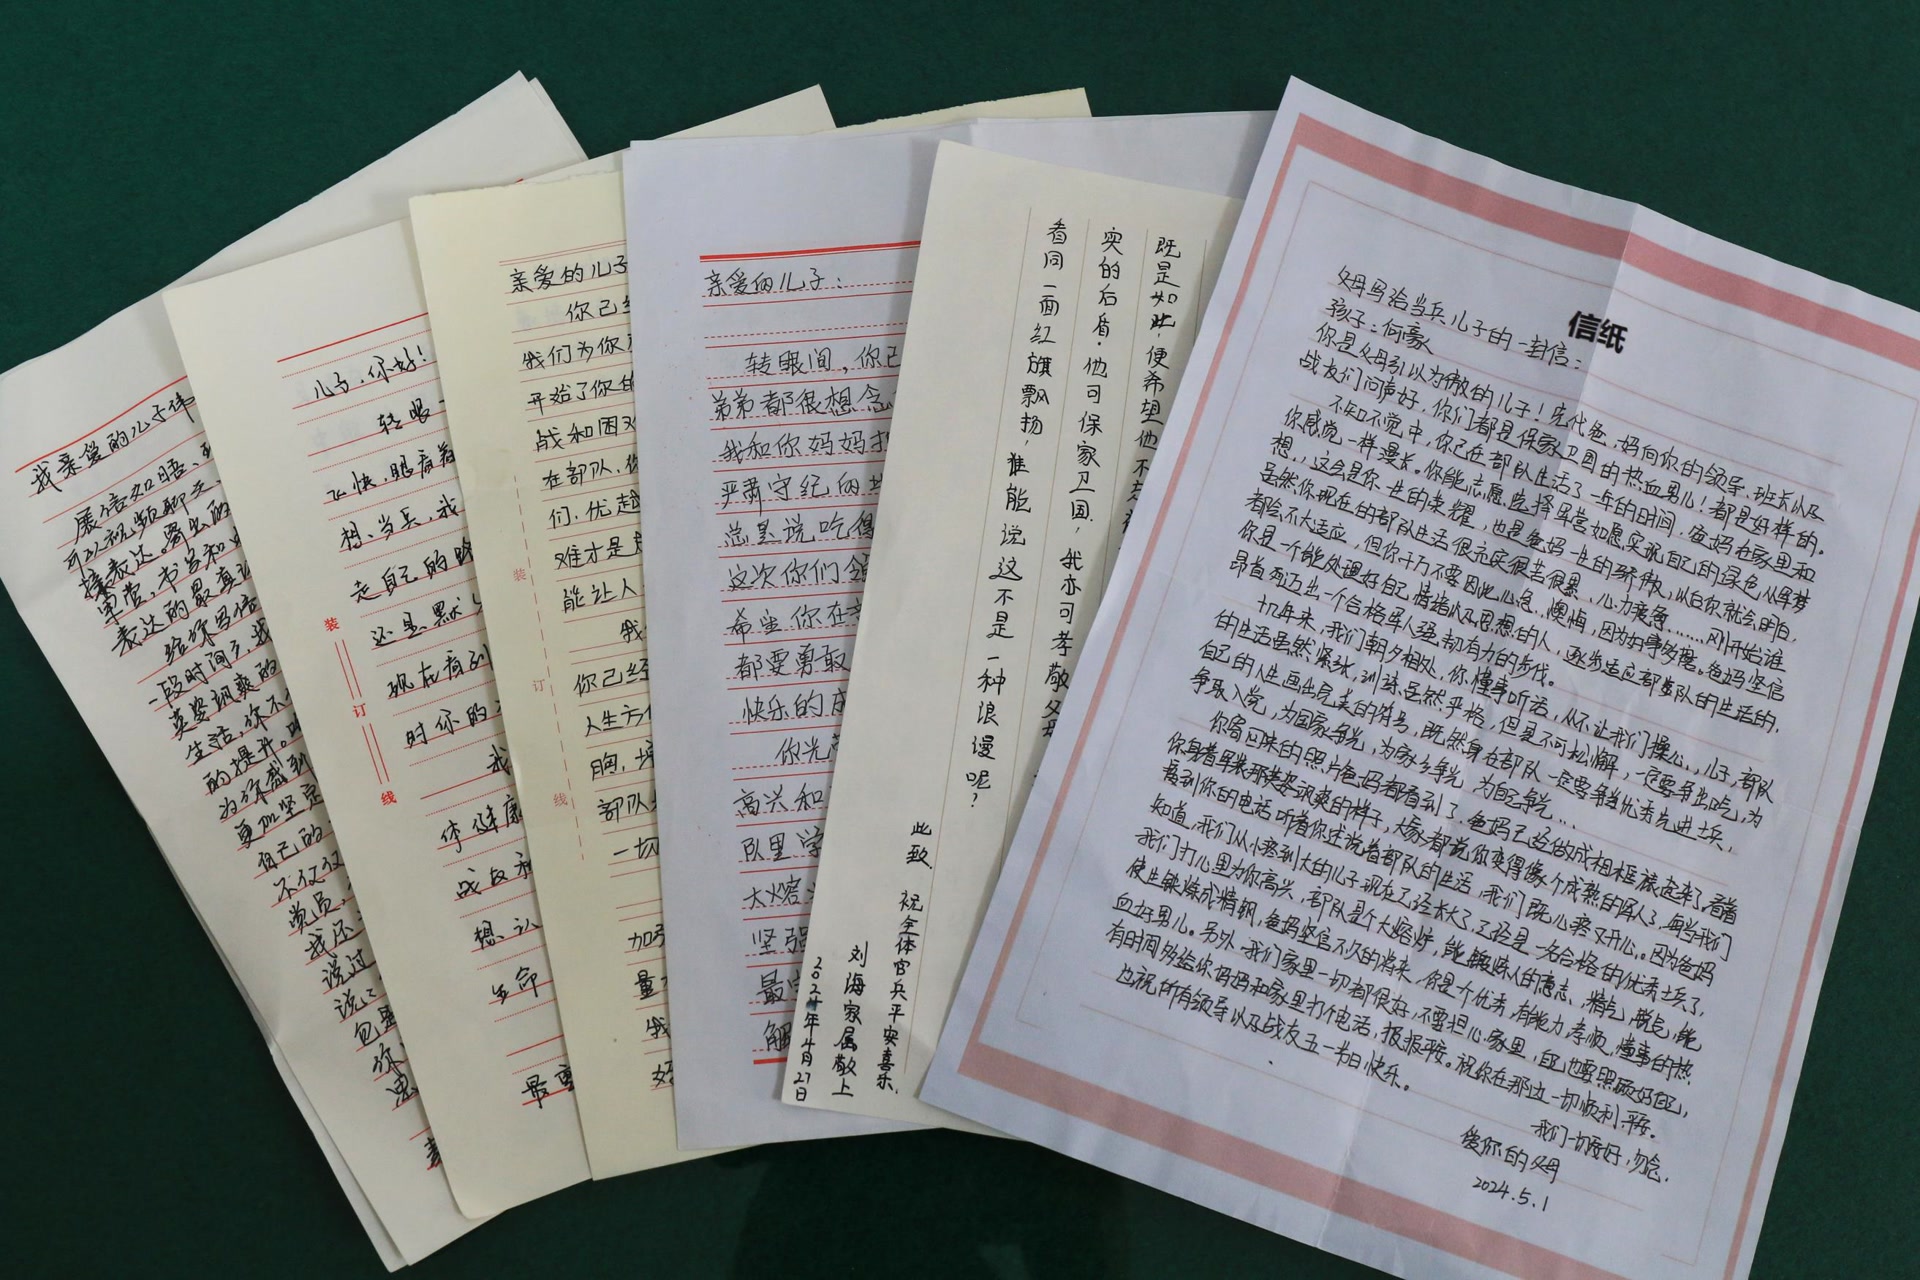 我亲爱的儿子伟
展信如晤、
可以视频聊天、
接表达。寄出的
军营,书名和
表达的最真
给你写信
一段时间了,我
英姿飒爽的
生活,你不
的提升。
为你感到
更加坚定
自己的
不仅仅
党员,
我还
说过
说:
包
你
儿子,你好!
转眼一
飞快,眼看着
想、当兵,我
走自己的路
还是默
现在看到
时你的
我
体健康
战友和
想、认
生命
最重
装
订
线
亲爱的儿子
你已经
我们为你
开始了你的
战和困难
在部队,你
们,优越
难才是
能让人
我
你已经
人生方
胸,
部队
一切
加
量
我
好
装
订
线
亲爱的儿子:
转眼间,你已
弟弟都很想念
我和你妈妈
严肃守纪的
总是说吃得
这次你们
希望你在
都要勇敢
快乐的成
你光荣
高兴和
队里学
大熔
坚强
最
解
既是如此,便希望他不
实的后盾。他可保家卫国,我亦可孝敬父母
看同一面红旗飘扬,谁能说这不是一种浪漫呢?
此致
祝全体官兵平安喜乐.
刘海家属敬上
2024年4月27日
信纸
父母写给当兵儿子的一封信:
孩子:何豪
你是父母引以为傲的儿子!先代爸、妈向你的领导、班长以及
战友们问声好,你们都是保家卫国的热血男儿!都是好样的。
不知不觉中,你已在部队生活了一年的时间,爸妈在家里和
你感觉一样漫长。你能志愿选择军营如愿实现自己的绿色从军梦
想,,这会是你一生的荣耀,也是爸妈一生的骄傲,以后你就会明白,
虽然你现在的部队生活很充实很苦很累、心力疲惫……刚开始谁
都会不大适应,但你千万不要因此心急、懊悔,因为好事多磨。爸妈坚信
你是一个能处理好自己情绪以及思想的人,逐步适应部队的生活的,
昂首迈出一个合格军人强韧有力的步伐。
十几年来,我们朝夕相处,你懂事听话,从不让我们操心,,儿子,部队
的生活虽然紧张,训练虽然严格,但是不可松懈,一定要争出吃,为
自己的人生画出完美的符号,既然身在部队一定要争当优秀先进士兵,
争取入党,为国家争光,为家乡争光,为自己争光…
你寄回来的照片爸妈都看到了,爸妈已经做成相框裱起来了,看着
你身着军装那英姿飒爽的样子,大家都说你变得像个成熟的军人了,每当我们
接到你的电话听着你述说着部队的生活,我们既心疼又开心。因为爸妈
知道,我们从小疼到大的儿子现在已经长大了,已经是一名合格的优秀士兵了,
我们打心里为你高兴,部队是个大熔炉,能锻炼人的意志、精气、脱气,能
使生铁炼成精钢,爸妈坚信不久的将来,你是个优秀,有能力,孝顺,懂事的热
血好男儿。另外,我们家里一切都很好,不要担心家里,自己也要照顾好自己,
有时间多给你妈妈和家里打个电话,报报平安。祝你在那边一切顺利,平安。
也祝所有领导以及战友五一节日快乐。
我们一切安好,勿念.
爱你的父母
2024.5.1